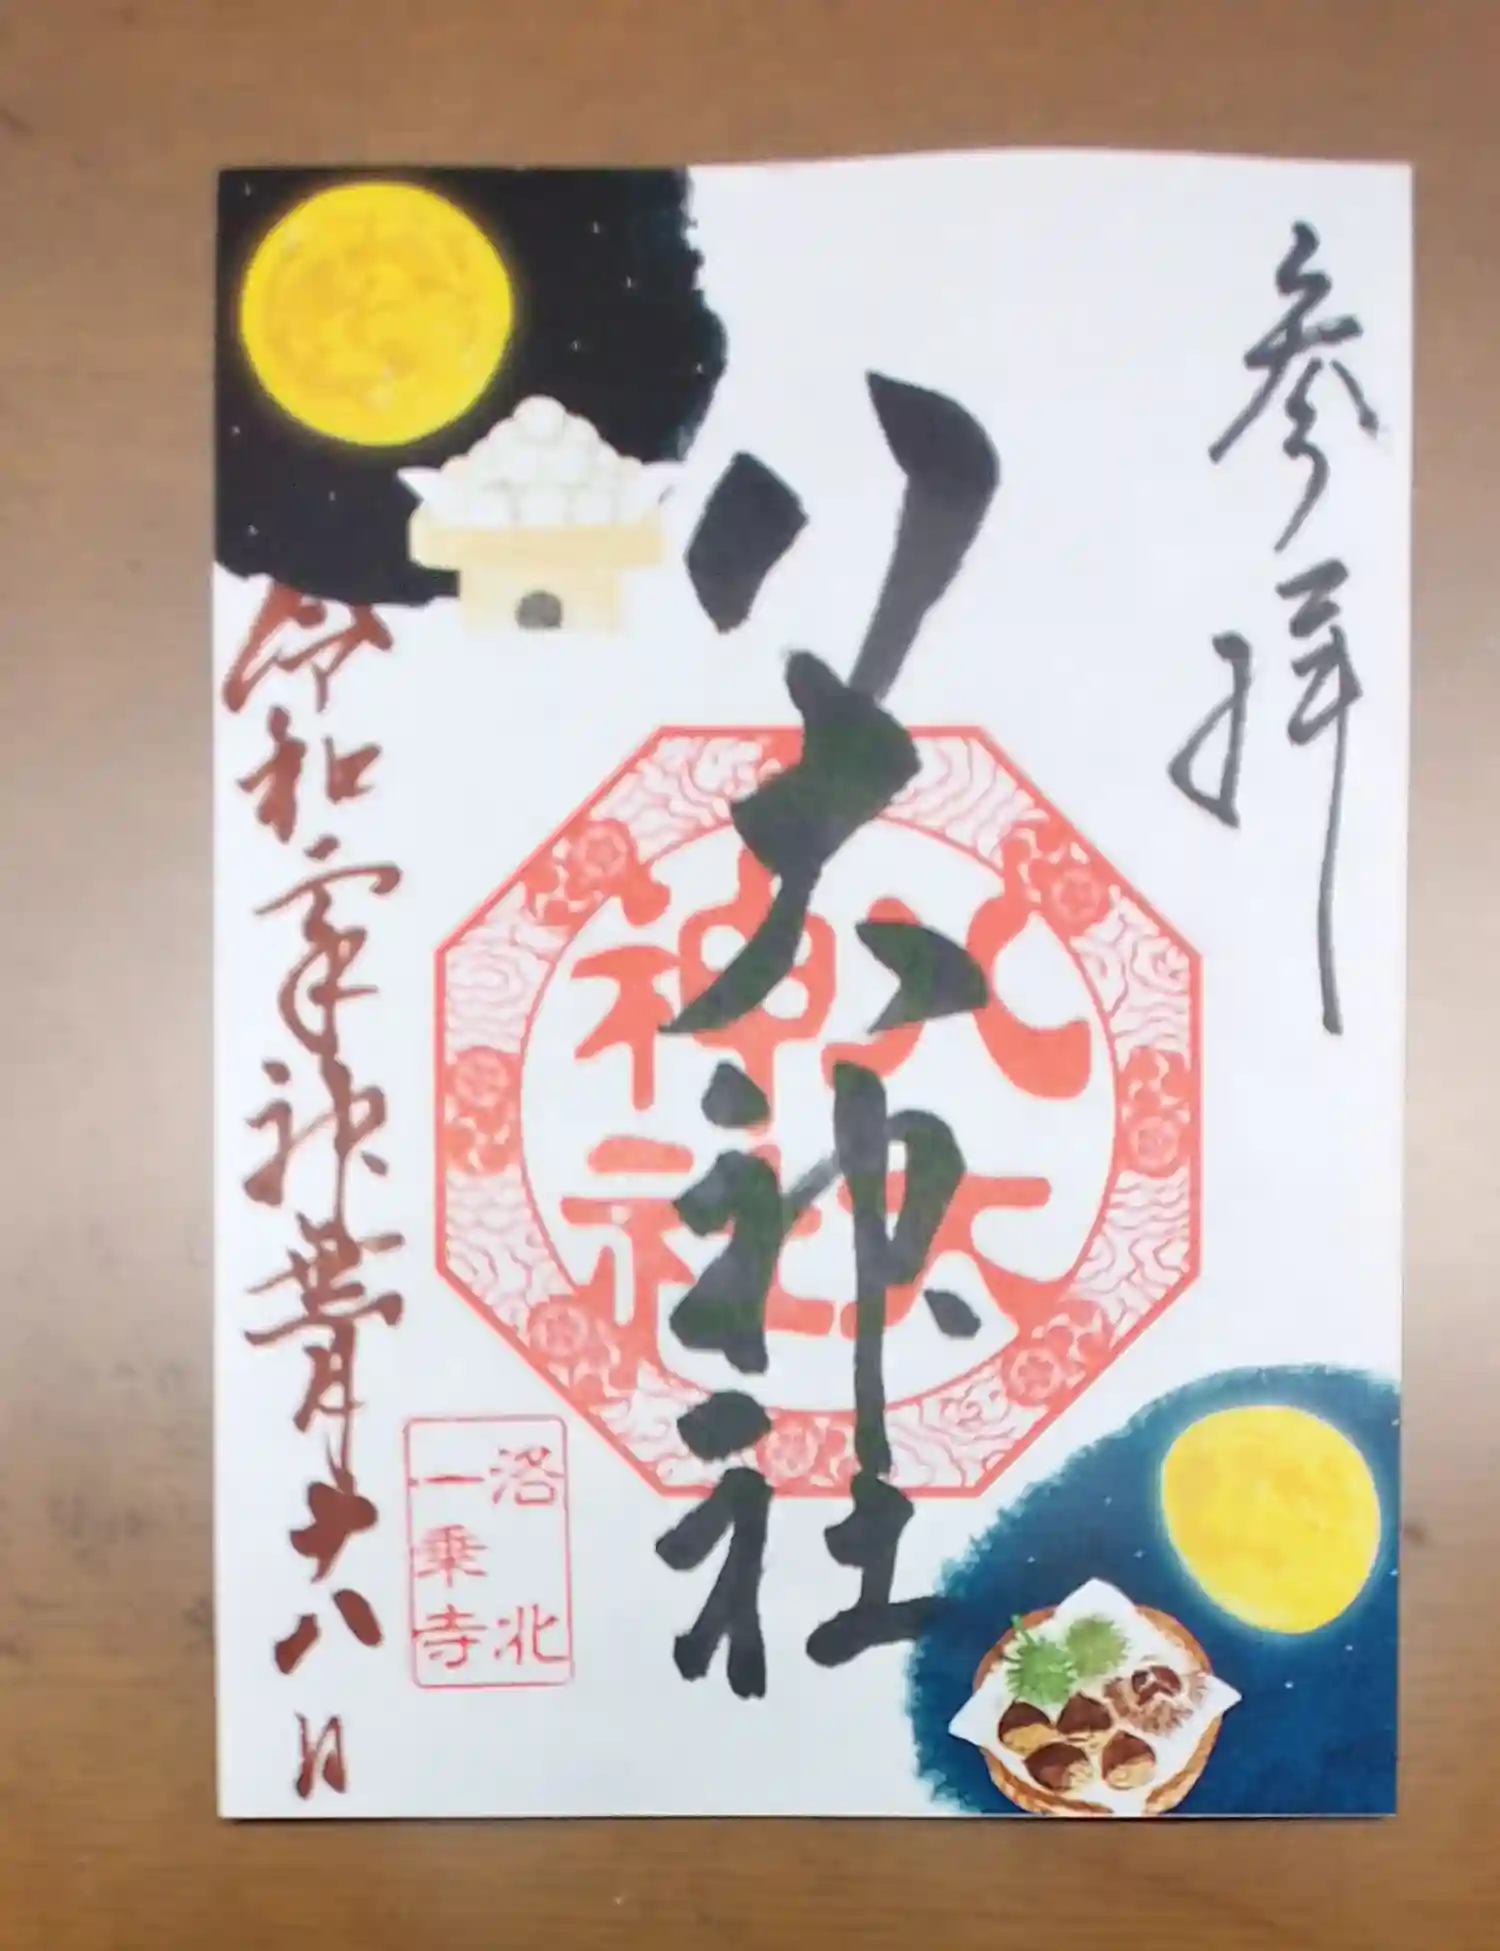 参拝
八大神社
八大
神社
洛北
一乗寺
令和三年神無月十八日